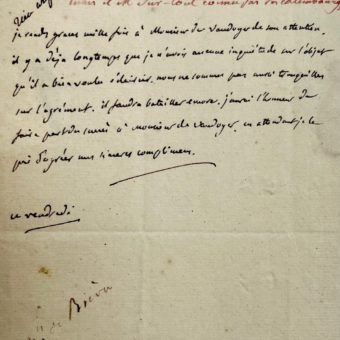 mais il est surtout connu par ses calembourgs
je rends graces mille fois à Monsieur de Vaudoyer de son attention,
il y a déja longtemps que je n'avois aucune inquiétude sur l'objet
qu'il a bien voulu éclaircir. nous ne sommes pas aussi tranquilles
sur l'agrément. il faudra batailler encore. j'aurai l'honneur de
faire part du succès à Monsieur de Vaudoyer. en attendant je le
prie d'agréer mes sinceres complimens.
ce vendredi
de Bièvre